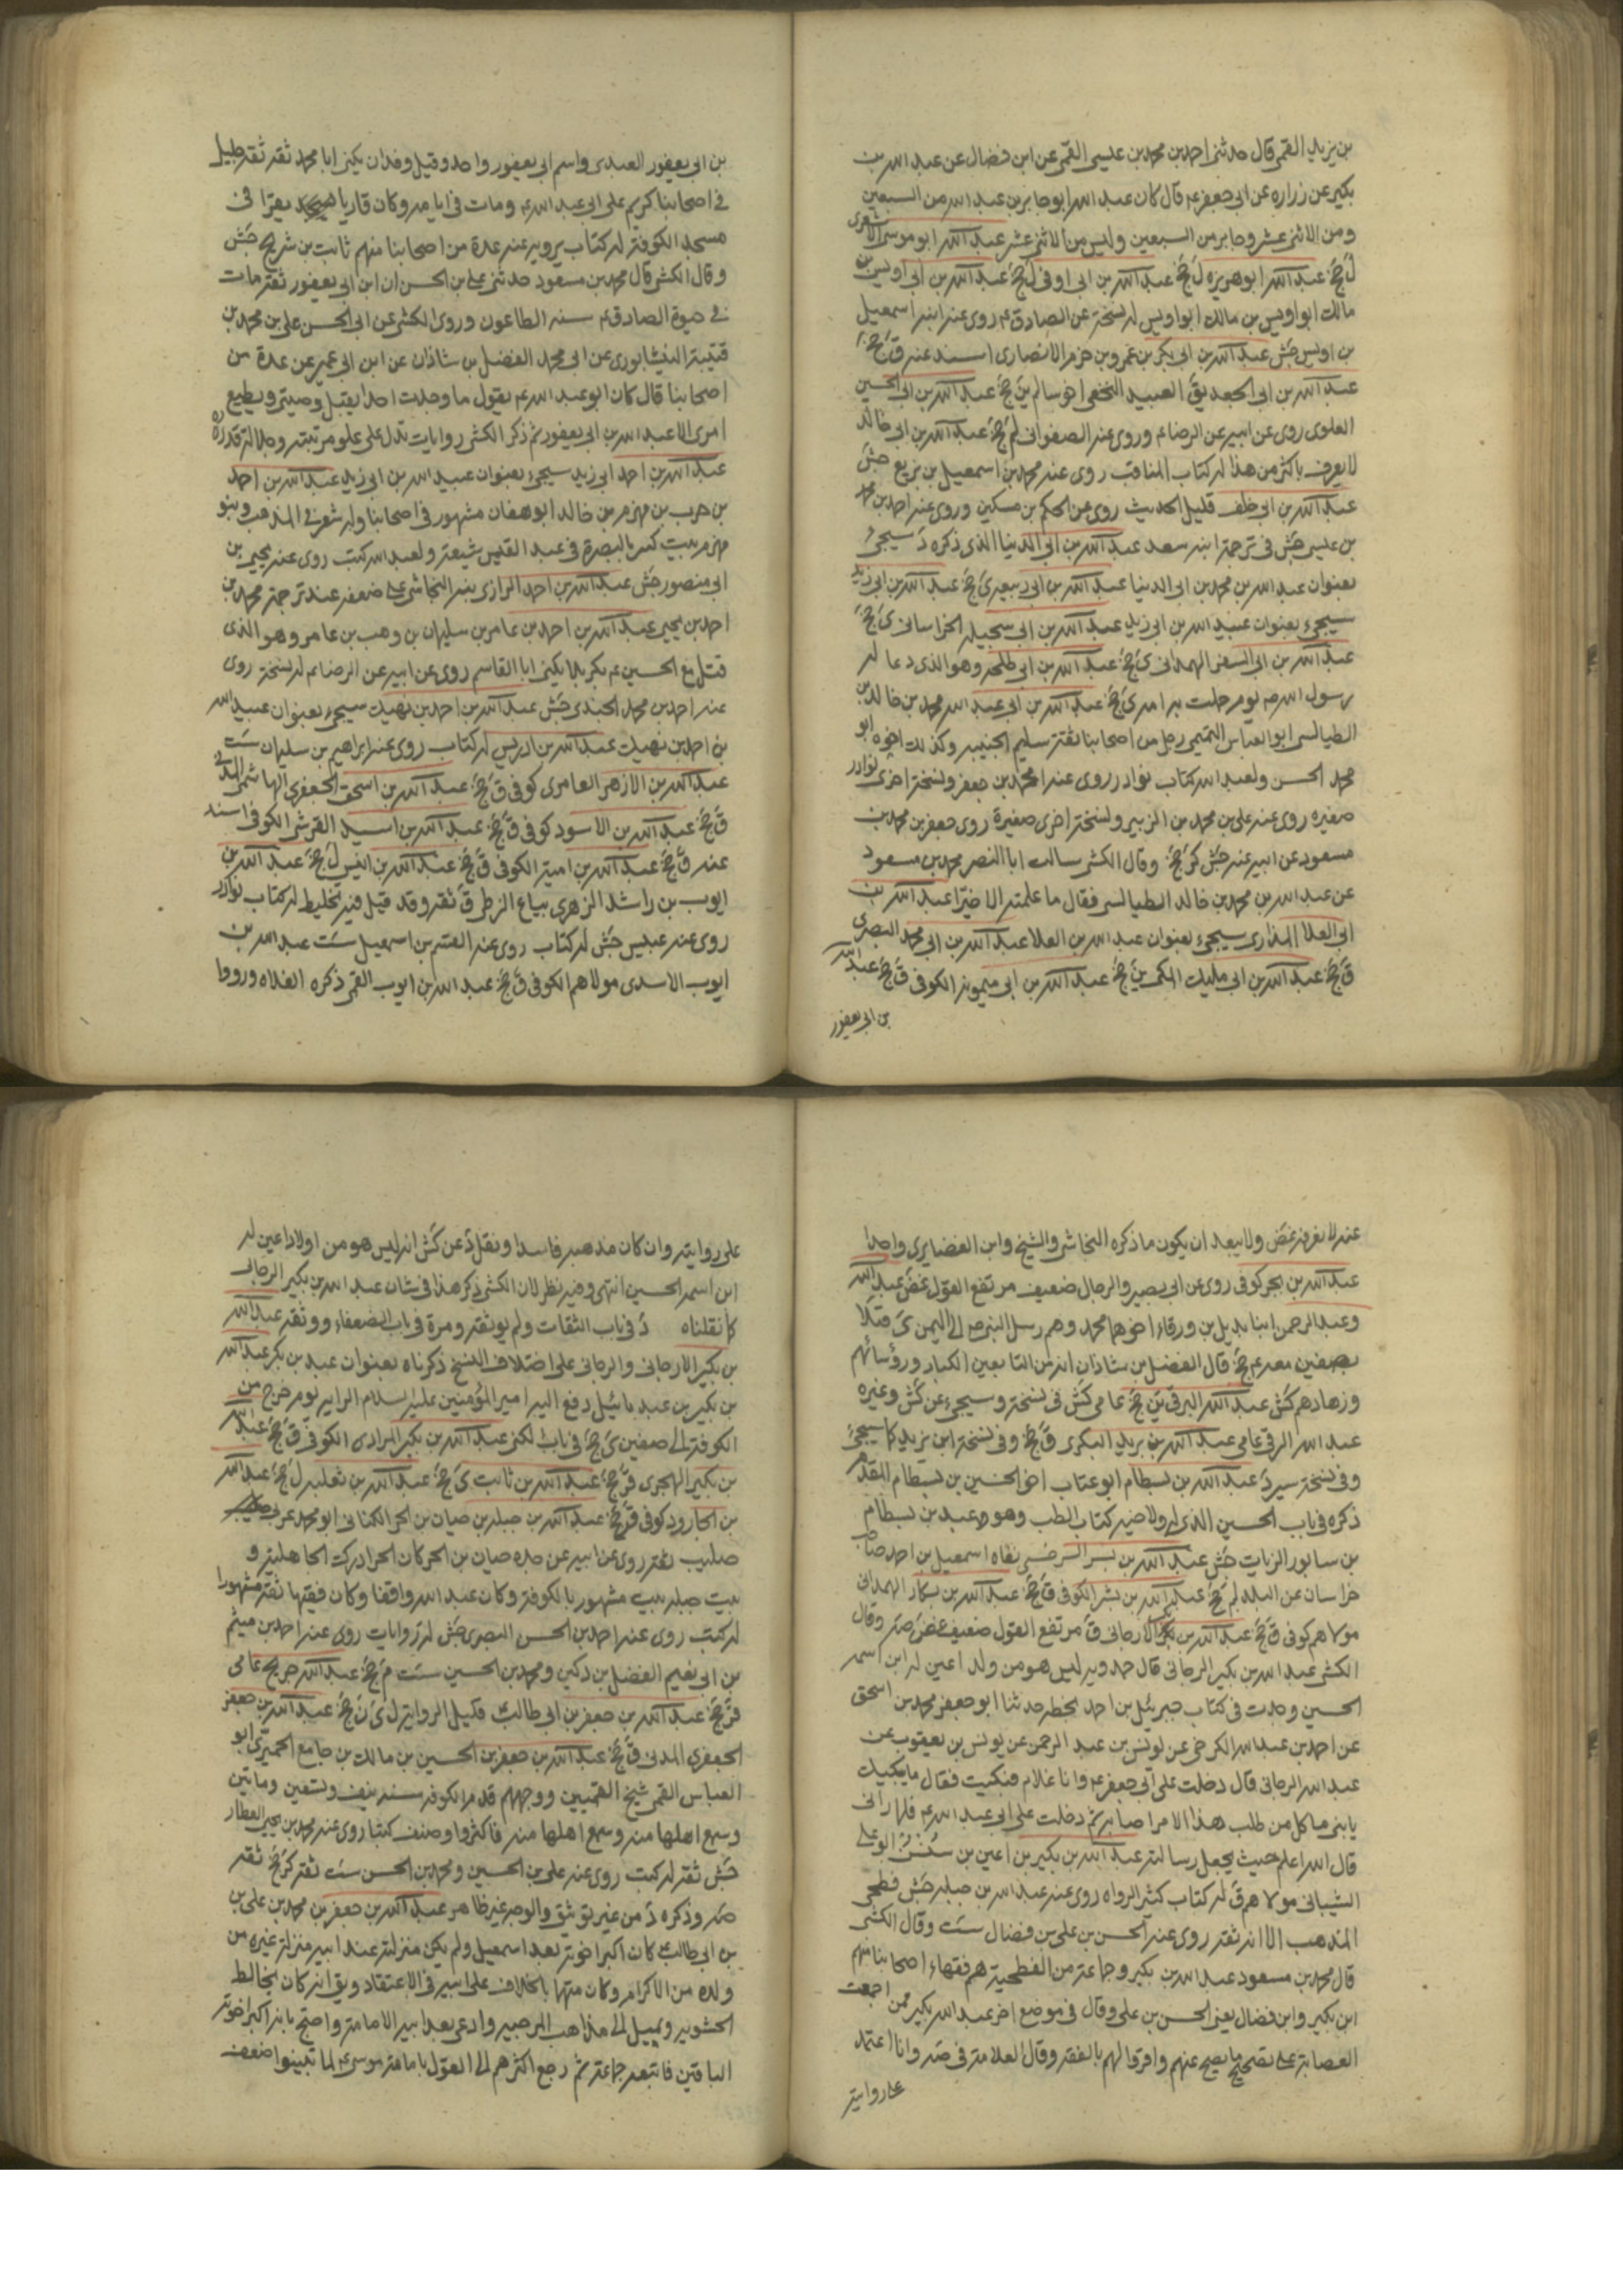 بن يزيد القمى قال حدثنى احمد بن محمد بن عيسى القمى عن ابن فضال عن عبد الله بن
بكير عن زراره عن ابى جعفر ع قال كان عبد الله ابو جابر بن عبد الله من السبعين
ومن الاثنى عشر وجابر من السبعين وليس من الاثنى عشر عبد الله ابو موسى الاشعرى
ل جخ عبد الله ابو هريره ل جخ عبد الله بن ابى اوفى ل جخ عبد الله بن ابى اويس بن
مالك ابو اويس بن مالك ابو اويس له نسخة عن الصادق ع روى عنه ابنه اسمعيل
بن اويس جش عبد الله بن ابى بكر بن عمرو بن حزم الانصارى اسند عنه ق جخ
عبد الله بن ابى الجعد يق العبيد النخعى اخو سالم ين جخ عبد الله بن ابى الحسين
العلوى روى عن ابيه عن الرضا ع وروى عنه الصفوانى لم جخ عبد الله بن ابى خالد
لا يعرف باكثر من هذا له كتاب المناقب روى عنه محمد بن اسمعيل بن بزيع جش
عبد الله بن ابى خلف قليل الحديث روى عن الحكم بن مسكين وروى عنه احمد بن محمد
بن عيسى جش فى ترجمة ابنه سعد عبد الله بن ابى الدنيا الذى ذكره د سيجىء
بعنوان عبد الله بن محمد بن ابى الدنيا عبد الله بن ابى ربيعه ى جخ عبد الله بن ابى زيد
سيجىء بعنوان عبيد الله بن ابى زيد عبد الله بن ابى سخيله الخراسانى ى جخ
عبد الله بن ابى السفر الهمدانى ى جخ عبد الله بن ابى طلحه وهو الذى دعا له
رسول الله ص يوم حملت به امه ى جخ عبد الله بن ابى عبد الله محمد بن خالد بن
الطيالسى ابو العباس التميمى رجل من اصحابنا ثقة سليم الجنبة وكذلك اخوه ابو
محمد الحسن ولعبد الله كتاب نوادر روى عنه محمد بن جعفر ونسخة اخرى نوادر
صغيره روى عنه على بن محمد بن الزبير ونسخة اخرى صغيرة روى جعفر بن محمد بن
مسعود عن ابيه عنه جش كر جخ وقال الكشى سالت ابا النصر محمد بن مسعود
عن عبد الله بن محمد بن خالد الطيالسى فقال ما علمته الا خيرا عبد الله بن
ابى العلا المذارى سيجىء بعنوان عبد الله بن العلا عبد الله بن ابى محمد البصرى
ق جخ عبد الله بن ابى مليك المكى ين جخ عبد الله بن ابى ميمونه الكوفى ق جخ عبد الله
بن ابى يعفور
بن ابى يعفور العبدى واسم ابى يعفور واحد وقيل وفدان يكنى ابا محمد ثقة ثقة جليل
فى اصحابنا كريم على ابى عبد الله ع ومات فى ايامه وكان قاريا يقرا فى
مسجد الكوفة له كتاب يرويه عنه عدة من اصحابنا منهم ثابت بن شريح جش
وقال الكشى قال محمد بن مسعود حدثنى على بن الحسن ان ابن ابى يعفور ثقة مات
فى حيوة الصادق ع سنة الطاعون وروى الكشى عن ابى الحسن على بن محمد بن
قتيبة النيشابورى عن ابى محمد الفضل بن شاذان عن ابن ابى عمير عن عدة من
اصحابنا قال كان ابو عبد الله ع يقول ما وجدت احدا يقبل وصيتى ويطيع
امرى الا عبد الله بن ابى يعفور ثم ذكر الكشى روايات تدل على علو مرتبته وجلالة قدره
عبد الله بن احمد ابى زيد سيجىء بعنوان عبيد الله بن ابى زيد عبد الله بن احمد
بن حرب بن مهزم بن خالد ابو هفان مشهور فى اصحابنا وله شعر فى المذهب وبنو
مهزم بيت كبير بالبصرة فى عبد القيس شيعة ولعبد الله كتب روى عنه يحيى بن
ابى منصور جش عبد الله بن احمد الرازى نبه النجاشى على ضعفه عند ترجمة محمد بن
احمد بن يحيى عبد الله بن احمد بن عامر بن سليمان بن وهب بن عامر وهو الذى
قتل مع الحسين ع بكربلا يكنى ابا القاسم روى عن ابيه عن الرضا ع له نسخة روى
عنه احمد بن محمد الجندى جش عبد الله بن احمد بن نهيك سيجىء بعنوان عبيد الله
بن احمد بن نهيك عبد الله بن ادريس له كتاب روى عنه ابراهيم بن سليمان ست
عبد الله بن الازهر العامرى كوفى ق جخ عبد الله بن اسحق الجعفرى الهاشمى المدنى
ق جخ عبد الله بن الاسود كوفى ق جخ عبد الله بن اسيد القرشى الكوفى اسند
عنه ق جخ عبد الله بن امية الكوفى ق جخ عبد الله بن انيس ل جخ عبد الله بن
ايوب بن راشد الزهرى بياع الزطى ق ثقة وقد قيل فيه تخليط له كتاب نوادر
روى عنه عبيس جش له كتاب روى عنه القسم بن اسمعيل ست عبد الله بن
ايوب الاسدى مولاهم الكوفى ق جخ عبد الله بن ايوب القمى ذكره الغلاة ورووا
عنه لا نعرفه غض ولا يبعد ان يكون ما ذكره النجاشى والشيخ وابن الغضايرى واحدا
عبد الله بن بحر كوفى روى عن ابى بصير والرجال ضعيف مرتفع القول غض عبد الله
وعبد الرحمن ابنا بديل بن ورقاء اخوهما محمد وهم رسل النبى ص الى اليمن ى قتلا
بصفين معه ع جخ قال الفضل بن شاذان انه من التابعين الكبار ورؤسائهم
وزهادهم كش عبد الله البرقى ين جخ عامى كش فى نسخة وسيجىء عن كش وغيره
عبد الله الرقى عامى عبد الله بن بريد البكرى ق جخ وفى نسخة ابن يزيد كما سيجىء
وفى نسخة سيرد عبد الله بن بسطام ابو عتاب اخو الحسين بن بسطام المقدم
ذكره فى باب الحسين الذى له ولاخيه كتاب الطب وهو عبد بن بسطام
بن سابور الزيات جش عبد الله بن بسر السرخسى نفاه اسمعيل بن احمد صاحب
خراسان عن البلد لم جخ عبد الله بن بشر الكوفى ق جخ عبد الله بن بكار الهمدانى
مولاهم كوفى ق جخ عبد الله بن بكر الارجانى ق مرتفع القول ضعيف غض صه وقال
الكشى عبد الله بن بكير الرجانى قال حمدويه ليس هو من ولد اعين له ابن اسمه
الحسين وجدت فى كتاب جبرئيل بن احمد بخطه حدثنا ابو جعفر محمد بن اسحق
عن احمد بن عبد الله الكرخى عن يونس بن عبد الرحمن عن يونس بن يعقوب عن
عبد الله الرجانى قال دخلت على ابى جعفر ع وانا غلام فبكيت فقال ما يبكيك
يا بنى ما كل من طلب هذا الامر اصابه ثم دخلت على ابى عبد الله ع فلما رانى
قال الله اعلم حيث يجعل رسالته عبد الله بن بكير بن اعين بن سنسن ابو على
الشيبانى مولاهم ق له كتاب كثير الرواه روى عنه عبد الله بن جبله جش فطحى
المذهب الا انه ثقة روى عنه الحسن بن على بن فضال ست وقال الكشى
قال محمد بن مسعود عبد الله بن بكير وجماعة من الفطحية هم فقهاء اصحابنا منهم
ابن بكير وابن فضال يعنى الحسن بن على وقال فى موضع اخر عبد الله بكير ممن اجمعت
العصابة على تصحيح ما يصح عنهم واقروا لهم بالفقه وقال العلامة فى صه وانا اعتمد
على روايته
على روايته وان كان مذهبه فاسدا ونقل د عن كش انه ليس هو من اولاد اعين له
ابن اسمه الحسين انتهى وفيه نظر لان الكشى ذكر هذا فى شان عبد الله بن بكير الرجانى
كما نقلناه د فى باب الثقات ولم يوثقه ومرة فى باب الضعفاء ووثقه عبد الله
بن بكير الارجانى والرجانى على اختلاف النسخ ذكرناه بعنوان عبد بن بكر عبد الله
بن بكير بن عبد يائيل دفع اليه امير المؤمنين عليه السلام الراية يوم خرج من
الكوفة الى صفين ى جخ فى باب الكنى عبد الله بن بكير المرادى الكوفى ق جخ عبد الله
بن بكير الهجرى قر جخ عبد الله بن ثابت ى جخ عبد الله بن ثعلبه ل جخ عبد الله
بن الجارود كوفى قر جخ عبد الله بن جبلة بن حيان بن الحر الكنانى ابو محمد عربى
صليب ثقة روى عن ابيه عن جده حيان بن الحر كان الحر ادرك الجاهلية و
بيت جبلة بيت مشهور بالكوفة وكان عبد الله واقفا وكان فقيها ثقة مشهورا
له كتب روى عنه احمد بن الحسن البصرى جش له روايات روى عنه احمد بن ميثم
بن ابى نعيم الفضل بن دكين ومحمد بن الحسين ست م جخ عبد الله جريح عامى
قر جخ عبد الله بن جعفر بن ابى طالب قليل الرواية ل ى ن جخ عبد الله بن جعفر
الجعفرى المدنى ق جخ عبد الله بن جعفر بن الحسين بن مالك بن جامع الحميرى ابو
العباس القمى شيخ القميين ووجههم قدم الكوفة سنة نيف وتسعين ومائتين
وسمع اهلها منه وسمع اهلها منه فاكثروا وصنف كتبا روى عنه محمد بن يحيى العطار
جش ثقة له كتب روى عنه على بن الحسين ومحمد بن الحسن ست ثقة كر جخ ثقة
صه وذكره د من غير توثيق والوجه غير ظاهر عبد الله بن جعفر بن محمد بن على بن
بن ابى طالب ع كان اكبر اخوته بعد اسمعيل ولم يكن منزلته عند ابيه منزلة غيره من
ولده من الاكرام وكان متهما بالخلاف على ابيه فى الاعتقاد ويق انه كان يخالط
الحشوية ويميل الى مذاهب المرجية وادعى بعد ابيه الامامة واحتج بانه اكبر اخوته
الباقين فاتبعه جماعة ثم رجع اكثرهم الى القول بامامة موسى ع لما تبينوا ضعف